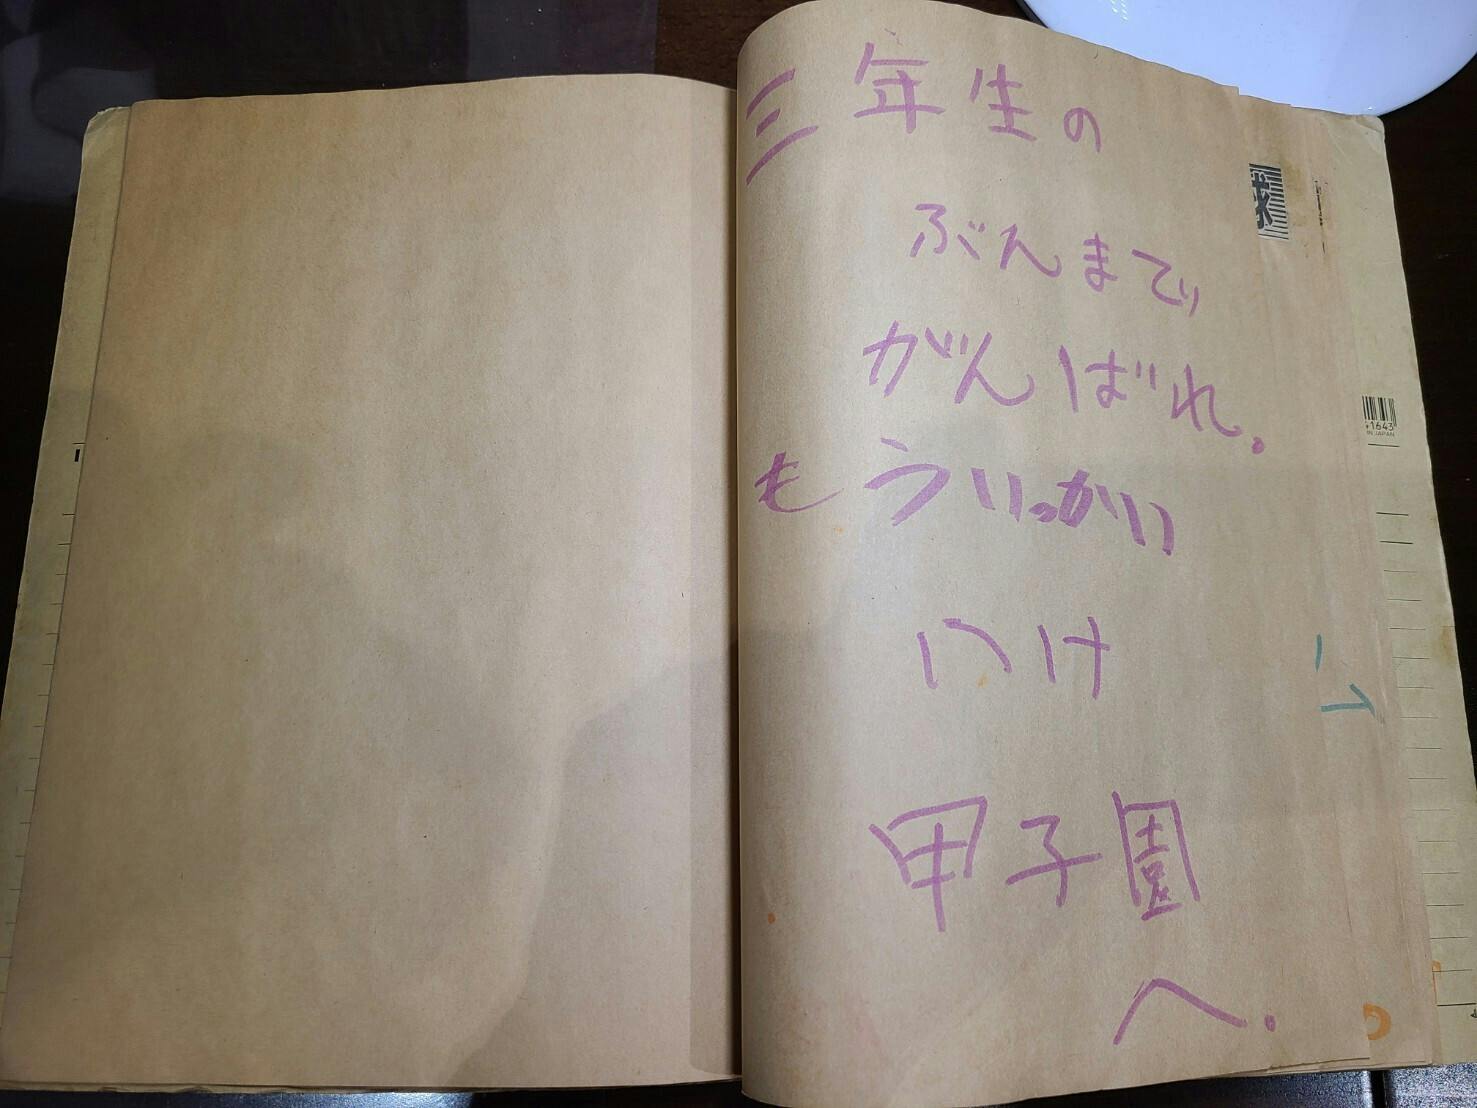 三年生の
ぶんまで
がんばれ.
もういっかい
いけ
甲子園
へ.
球
1643
IN JAPAN